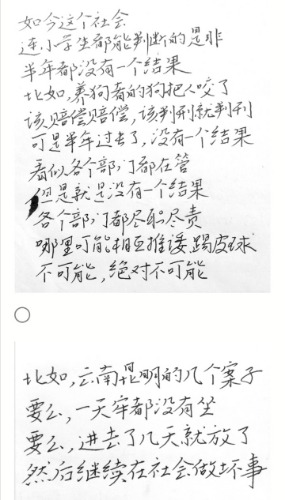 如今这个社会
连小学生都能判断的是非
半年都没有一个结果
比如,养狗者的狗把人咬了
该赔偿赔偿,该判刑就判刑
可是半年过去了,没有一个结果
看似各个部门都在管
但是就是没有一个结果
各个部门都尽职尽责
哪里可能相互推诿踢皮球
不可能,绝对不可能
比如,云南昆明的几个案子
要么,一天牢都没有坐
要么,进去了几天就放了
然后继续在社会做坏事